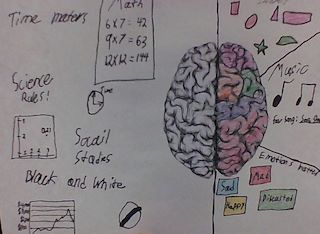 Time matters
Math
6 x 7 = 42
9 x 7 = 63
12 x 12 = 144
Science
Rules!
Time
Music
fav song:
Social
Studies
Black and White
Emotions
Sad
Mad
Happy
Disgusted